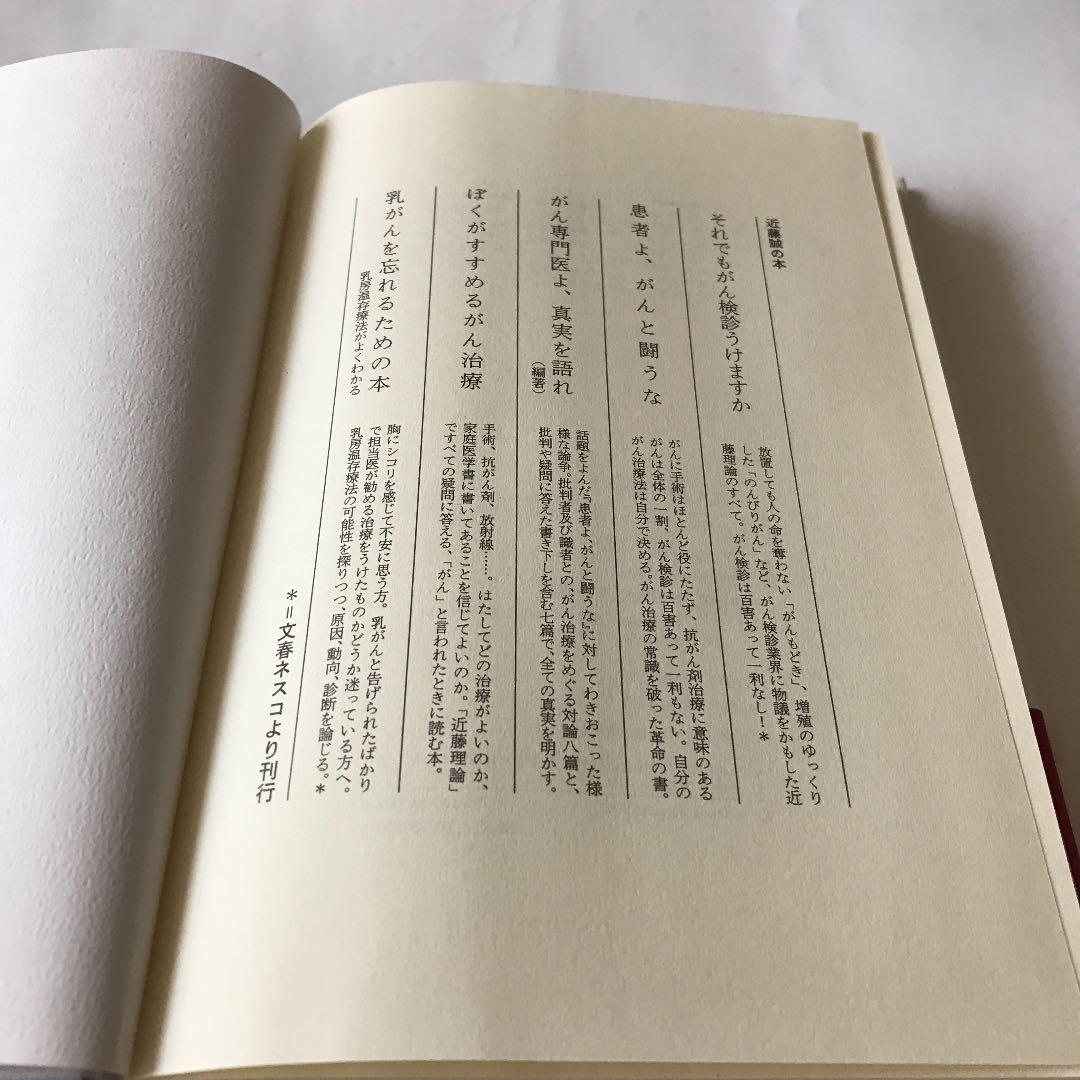 近藤誠の本
それでもがん検診うけますか
放置しても人の命を奪わない「がんもどき」、増殖のゆっくり
した「のんびりがん」など、がん検診業界に物議をかもした近
藤理論のすべて。がん検診は百害あって一利なし！＊
患者よ、がんと闘うな
がんに手術はほとんど役にたたず、抗がん剤治療に意味のある
がんは全体の一割、がん検診は百害あって一利もない。自分の
がん治療法は自分で決める。がん治療の常識を破った革命の書。
がん専門医よ、真実を語れ
（編著）
話題をよんだ『患者よ、がんと闘うな』に対してわきおこった様
様な論争。批判者及び識者との、がん治療をめぐる対論八篇と、
批判や疑問に答えた書き下しを含む七篇で、全ての真実を明かす。
ぼくがすすめるがん治療
手術、抗がん剤、放射線……。はたしてどの治療がよいのか、
家庭医学書に書いてあることを信じてよいのか。「近藤理論」
ですべての疑問に答える、「がん」と言われたときに読む本。
乳がんを忘れるための本
乳房温存療法がよくわかる
胸にシコリを感じて不安に思う方。乳がんと告げられたばかり
で担当医が勧める治療をうけたものかどうか迷っている方へ。
乳房温存療法の可能性を探りつつ、原因、動向、診断を論じる。＊
＊＝文春ネスコより刊行